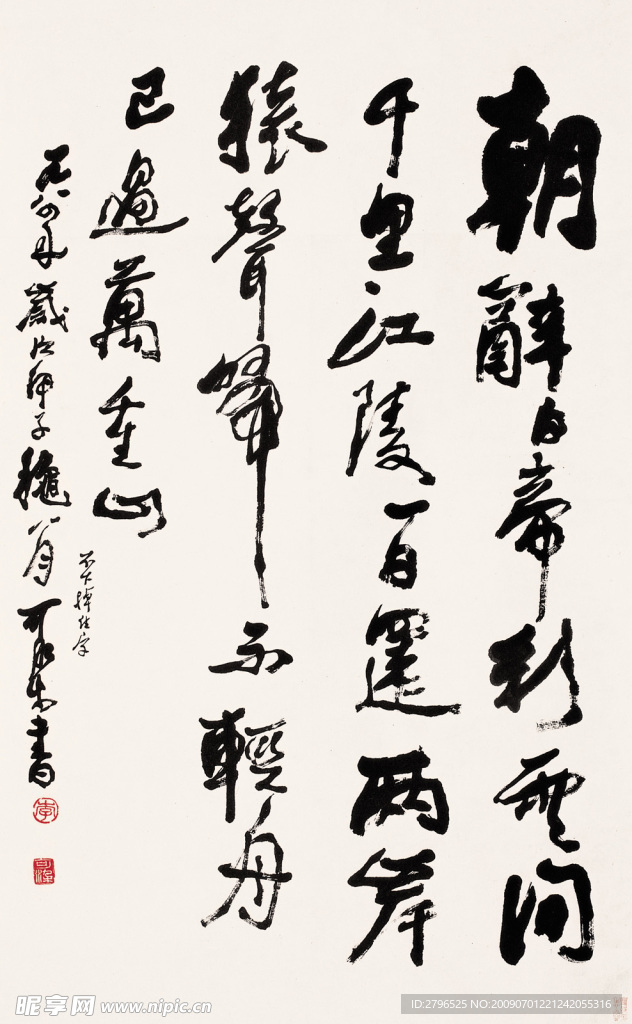 朝辭白帝彩雲間
千里江陵一日還两岸
猿聲啼不輕舟
已過萬重山
不下掉住字
一九八四年歲次甲子穐八月可染書
李
昵享网 www.nipic.cn
ID:2796525 NO:20090701221242055316